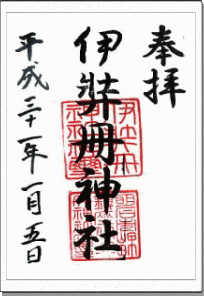 奉拝
伊弉冊神社
平成三十一年一月五日